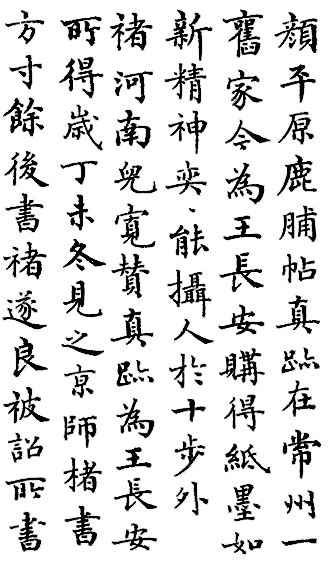 顏平原鹿脯帖真跡在常州一
舊家今為王長安購得紙墨如
新精神奕奕能攝人於十步外
褚河南兒寬贊真跡為王長安
所得歲丁未冬見之京師楮書
方寸餘後書褚遂良被詔所書